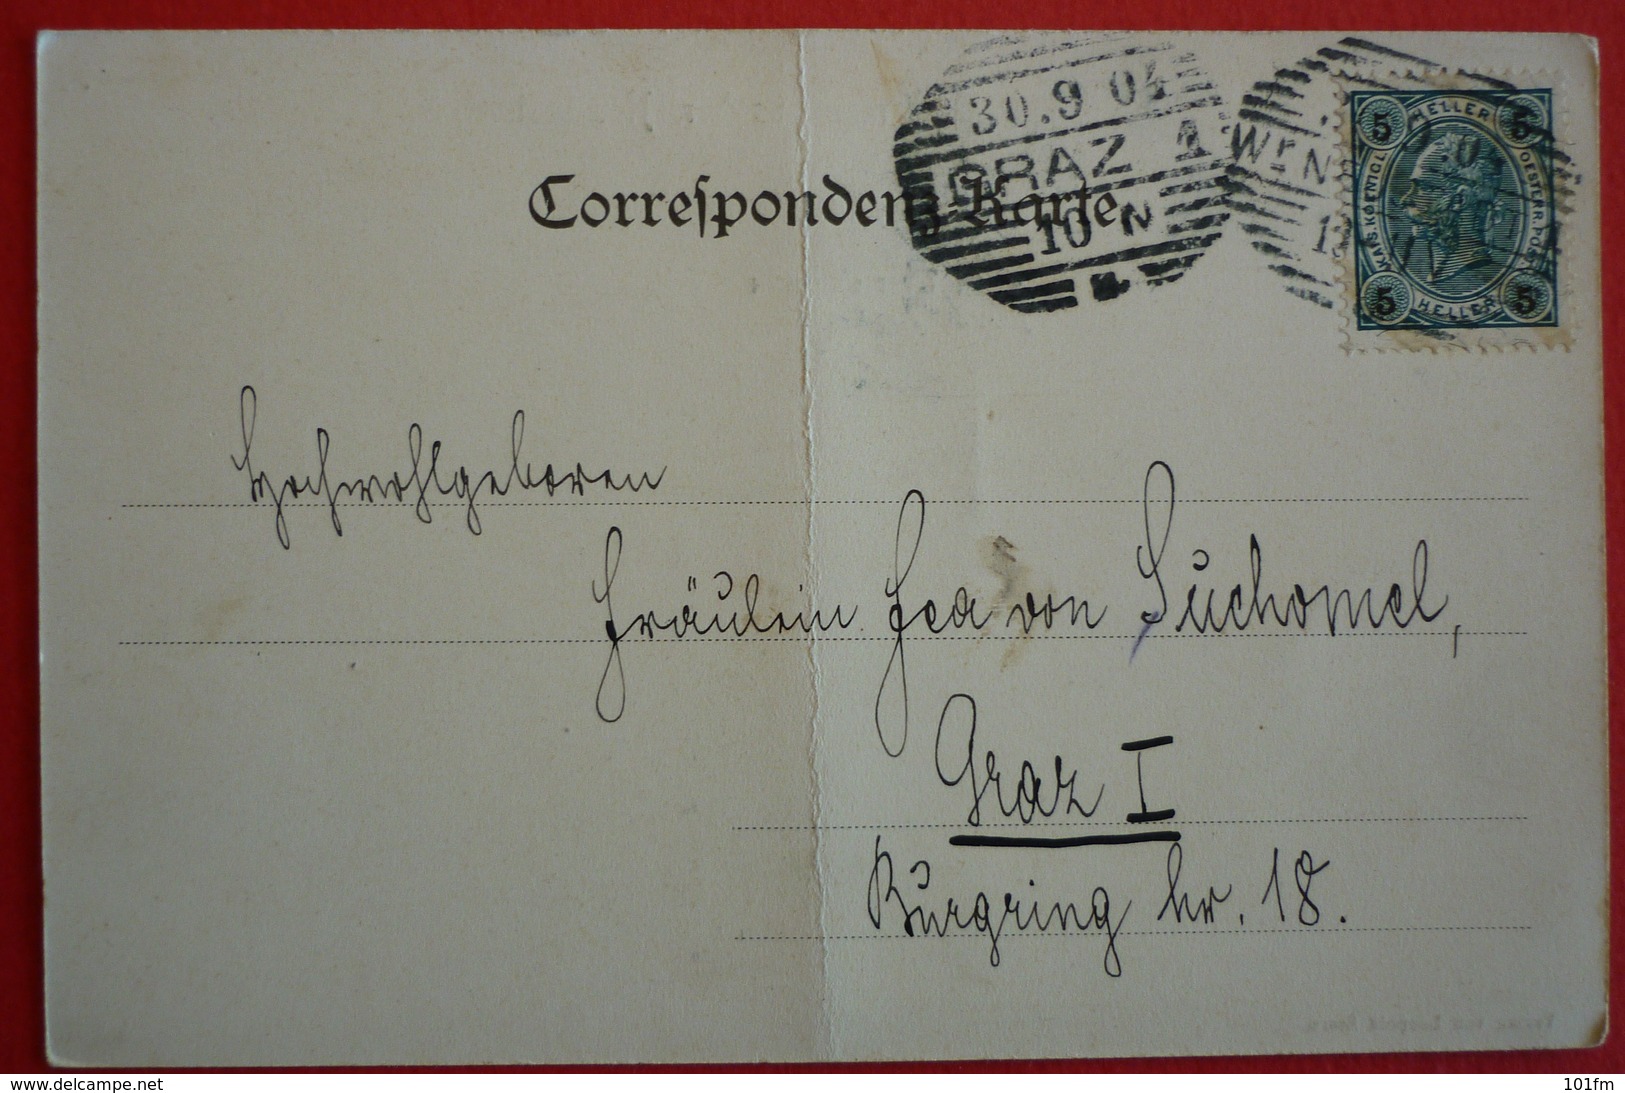 30.9 04
GRAZ 1
10 N
Wr N
HELLER
5 5
KAIS. KOENIGL. OESTERR. POST
5 5
HELLER
Correſpondenz-Karte.
Hochwohlgeboren
Fräulein Fea von Suchomel,
Graz I
Burgring Nr. 18.
www.delcampe.net
101fm